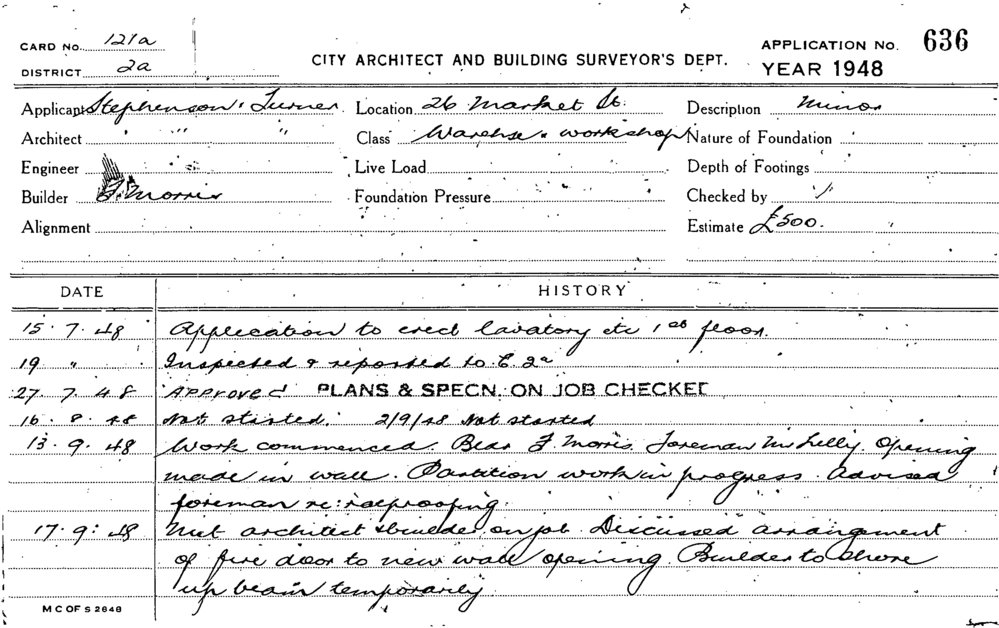 CARD No. 121a
DISTRICT 2a
CITY ARCHITECT AND BUILDING SURVEYOR'S DEPT.
APPLICATION No. 636
YEAR 1948
Applicant Stephenson & Turner Location 26 Market St. Description Minor
Architect " " " Class Warehse & workshop Nature of Foundation
Engineer Live Load Depth of Footings
Builder F. Morris Foundation Pressure Checked by
Alignment Estimate £500.
DATE HISTORY
15. 7. 48 Application to erect lavatory etc 1st floor.
19 " Inspected & reported to E. 2a
27. 7. 48 Approved PLANS & SPECN. ON JOB CHECKED
16. 8. 48 Not started. 2/9/48 Not started
13. 9. 48 Work commenced. F. Morris. Foreman Opening
made in wall. Partition work in progress. Advised
foreman re: ratproofing.
17. 9. 48 Met architect & builder on job. Discussed arrangement
of fire door to new wall opening. Builder to shore
up beam temporarily.
M C OF S 2648